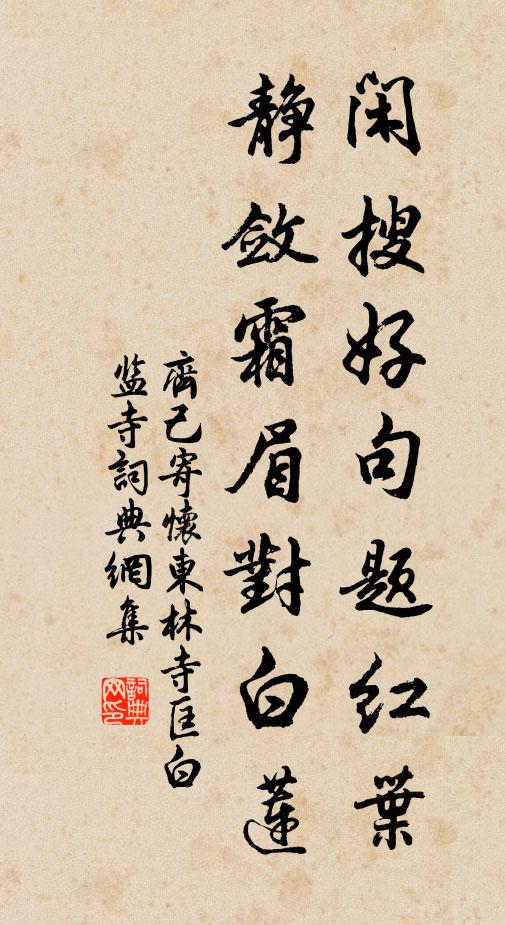 闲搜好句题红葉
静斂霜眉對白蓮
齊己寄懷東林寺匡白
监寺詞典網集
詞典网印